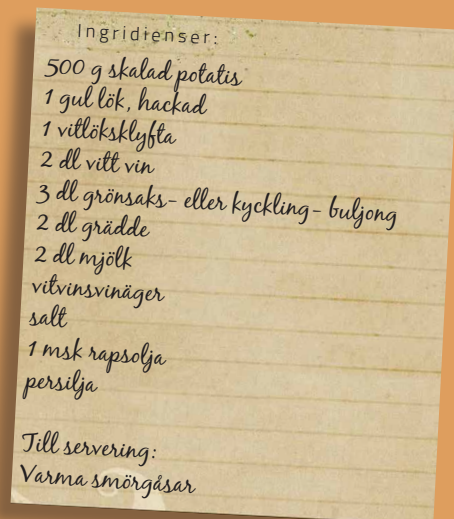 Ingridienser:
500 g skalad potatis
1 gul lök, hackad
1 vitlöksklyfta
2 dl vitt vin
3 dl grönsaks- eller kyckling- buljong
2 dl grädde
2 dl mjölk
vitvinsvinäger
salt
1 msk rapsolja
persilja
Till servering:
Varma smörgåsar